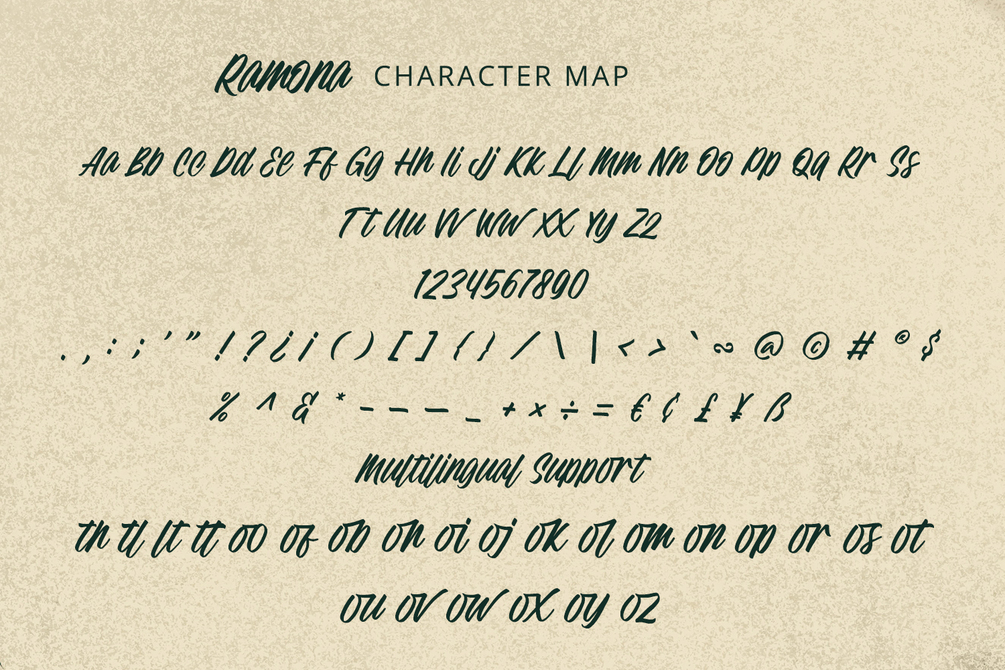 Ramona CHARACTER MAP
Aa Bb Cc Dd Ee Ff Gg Hh Ii Jj Kk Ll Mm Nn Oo Pp Qq Rr Ss
Tt Uu Vv Ww Xx Yy Zz
1234567890
. , : ; ' " ! ? ¿ ¡ ( ) [ ] { } / \ | < > ` ~ @ © # ® $
% ^ & * - – — _ + × ÷ = € ¢ £ ¥ ß
Multilingual Support
th tl lt tt oo of ob oh oi oj ok ol om on op or os ot
ou ov ow ox oy oz